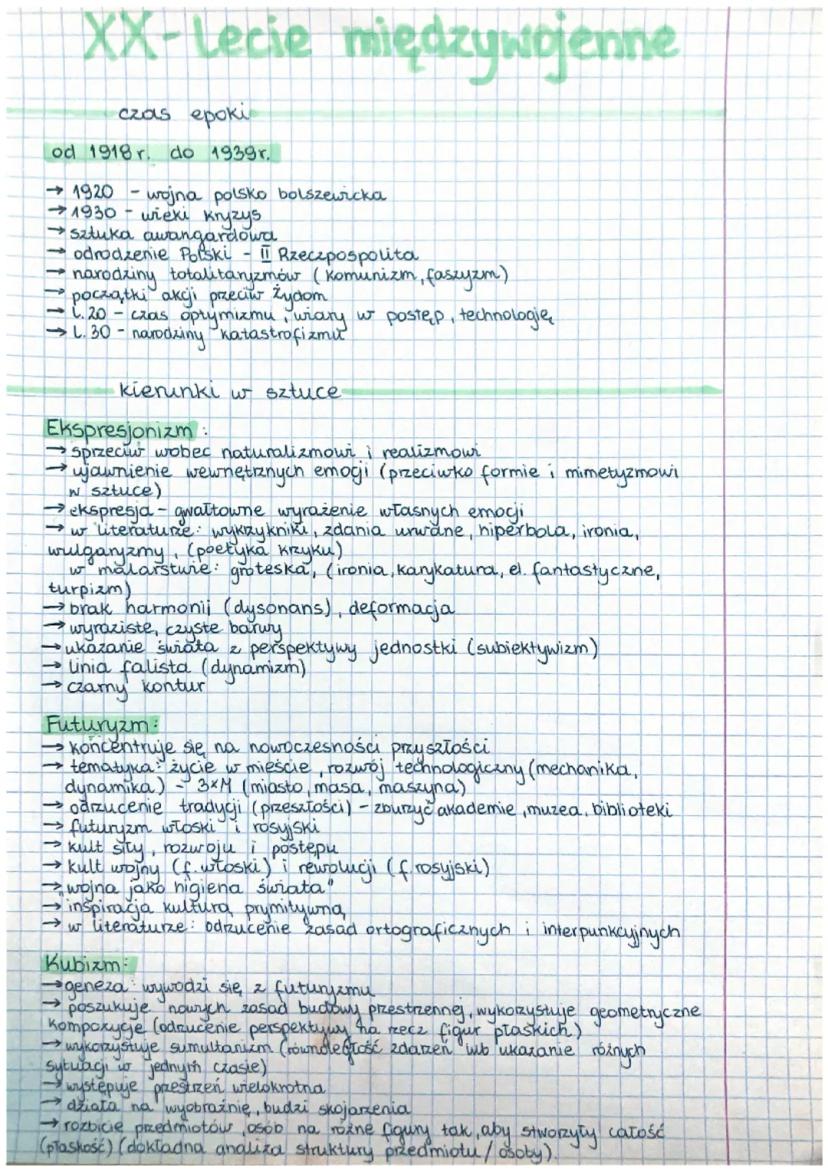 XX-Lecie międzywojenne
czas epoki
od 1918r. do 1939r.
→ 1920 - wojna polsko bolszewicka
→ 1930 - wieki kryzys
→ sztuka awangardowa
→ odrodzenie Polski - II Rzeczpospolita
→ narodziny totalitaryzmów (komunizm, faszyzm)
→ początki akcji przeciw Żydom
→ L.20 - czas optymizmu, wiary w postęp, technologię
→ L.30 - narodziny katastrofizmu
kierunki w sztuce
Ekspresjonizm:
→ sprzeciw wobec naturalizmowi i realizmowi
→ ujawnienie wewnętrznych emocji (przeciwko formie i mimetyzmowi
w sztuce)
→ ekspresja - gwałtowne wyrażenie własnych emocji
→ w literaturze: wykrzykniki, zdania urwane, hiperbola, ironia,
wulgaryzmy, (poetyka krzyku)
w malarstwie: groteska, (ironia, karykatura, el. fantastyczne,
turpizm)
→ brak harmonij (dysonans), deformacja
→ wyraziste, czyste barwy
→ ukazanie świata z perspektywy jednostki (subiektywizm)
→ linia falista (dynamizm)
→ czarny kontur
Futuryzm:
→ koncentruje się na nowoczesności przyszłości
→ tematyka: życie w mieście, rozwój technologiczny (mechanika,
dynamika) - 3xM (miasto, masa, maszyna)
→ odrzucenie tradycji (przeszłości) - zburzyć akademie, muzea, biblioteki
→ futuryzm włoski i rosyjski
→ kult siły, rozwoju i postępu
→ kult wojny (f. włoski) i rewolucji (f. rosyjski)
→ „wojna jako higiena świata"
→ inspiracja kulturą prymitywną
→ w literaturze: odrzucenie zasad ortograficznych i interpunkcyjnych
Kubizm:
→ geneza: wywodzi się z futuryzmu
→ poszukuje nowych zasad budowy przestrzennej, wykorzystuje geometryczne
kompozycje (odrzucenie perspektywy na rzecz figur płaskich)
→ wykorzystuje sumultanizm (równoległość zdarzeń lub ukazanie różnych
sytuacji w jednym czasie)
→ występuje przestrzeń wielokrotna
→ działa na wyobraźnię, budzi skojarzenia
→ rozbicie przedmiotów, osób na różne figury tak, aby stworzyły całość
(płaskość) (dokładna analiza struktury przedmiotu / osoby)